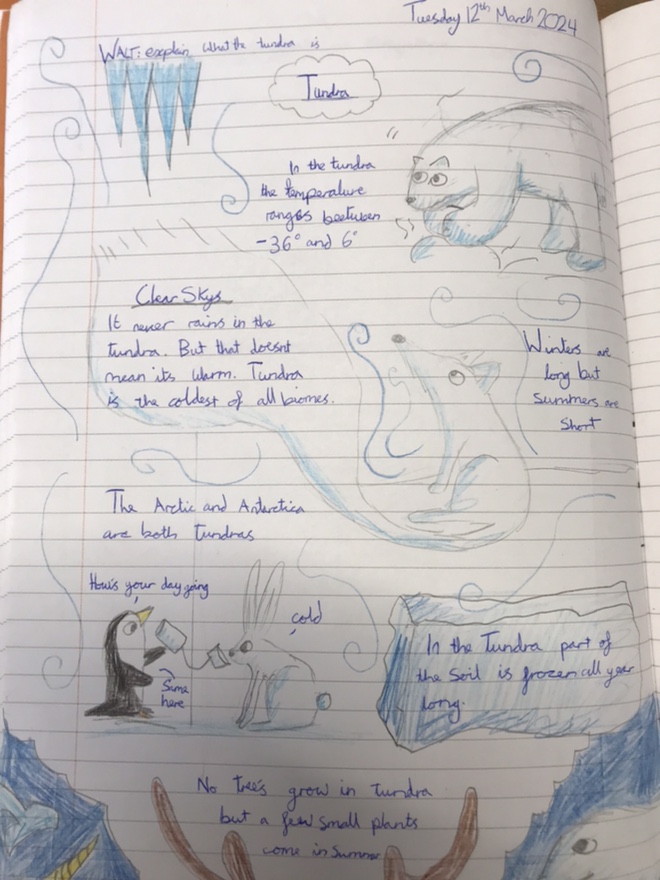 Tuesday 12th March 2024
WALT: explain what the tundra is
Tundra
In the tundra
the temperature
ranges beetween
-36° and 6°
Clear Skys
It never rains in the
tundra. But that doesnt
mean its warm. Tundra
is the coldest of all biomes.
Winters are
long but
Summers are
Short
The Arctic and Antarctica
are both Tundras
How's your day going
cold
Same
here
In the Tundra part of
the Soil is frozen all year
long.
No tree's grow in tundra
but a few small plants
come in Summer